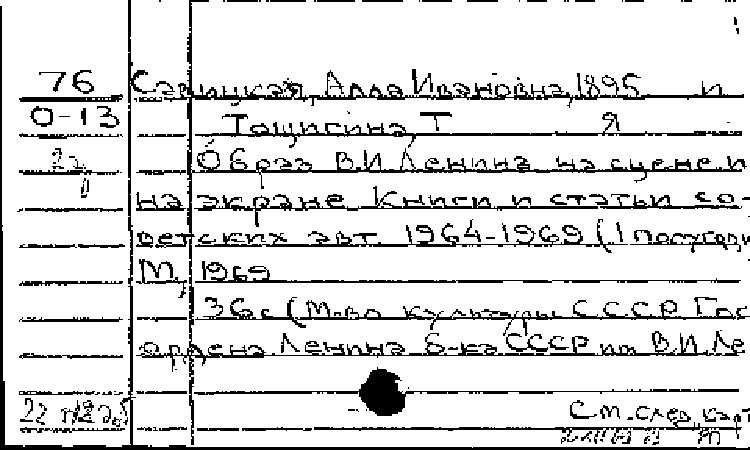 76 Савицкая, Алла Ивановна, 1895 и
О-13 Тощигина, Т Я
22 Образ В.И. Ленина на сцене и
на экране Книги и статьи со-
ветских авт. 1964-1969 (1 полугоди
М, 1969
36с (М-во культуры СССР Гос
ордена Ленина б-ка СССР им В.И. Ле
См. след. карт